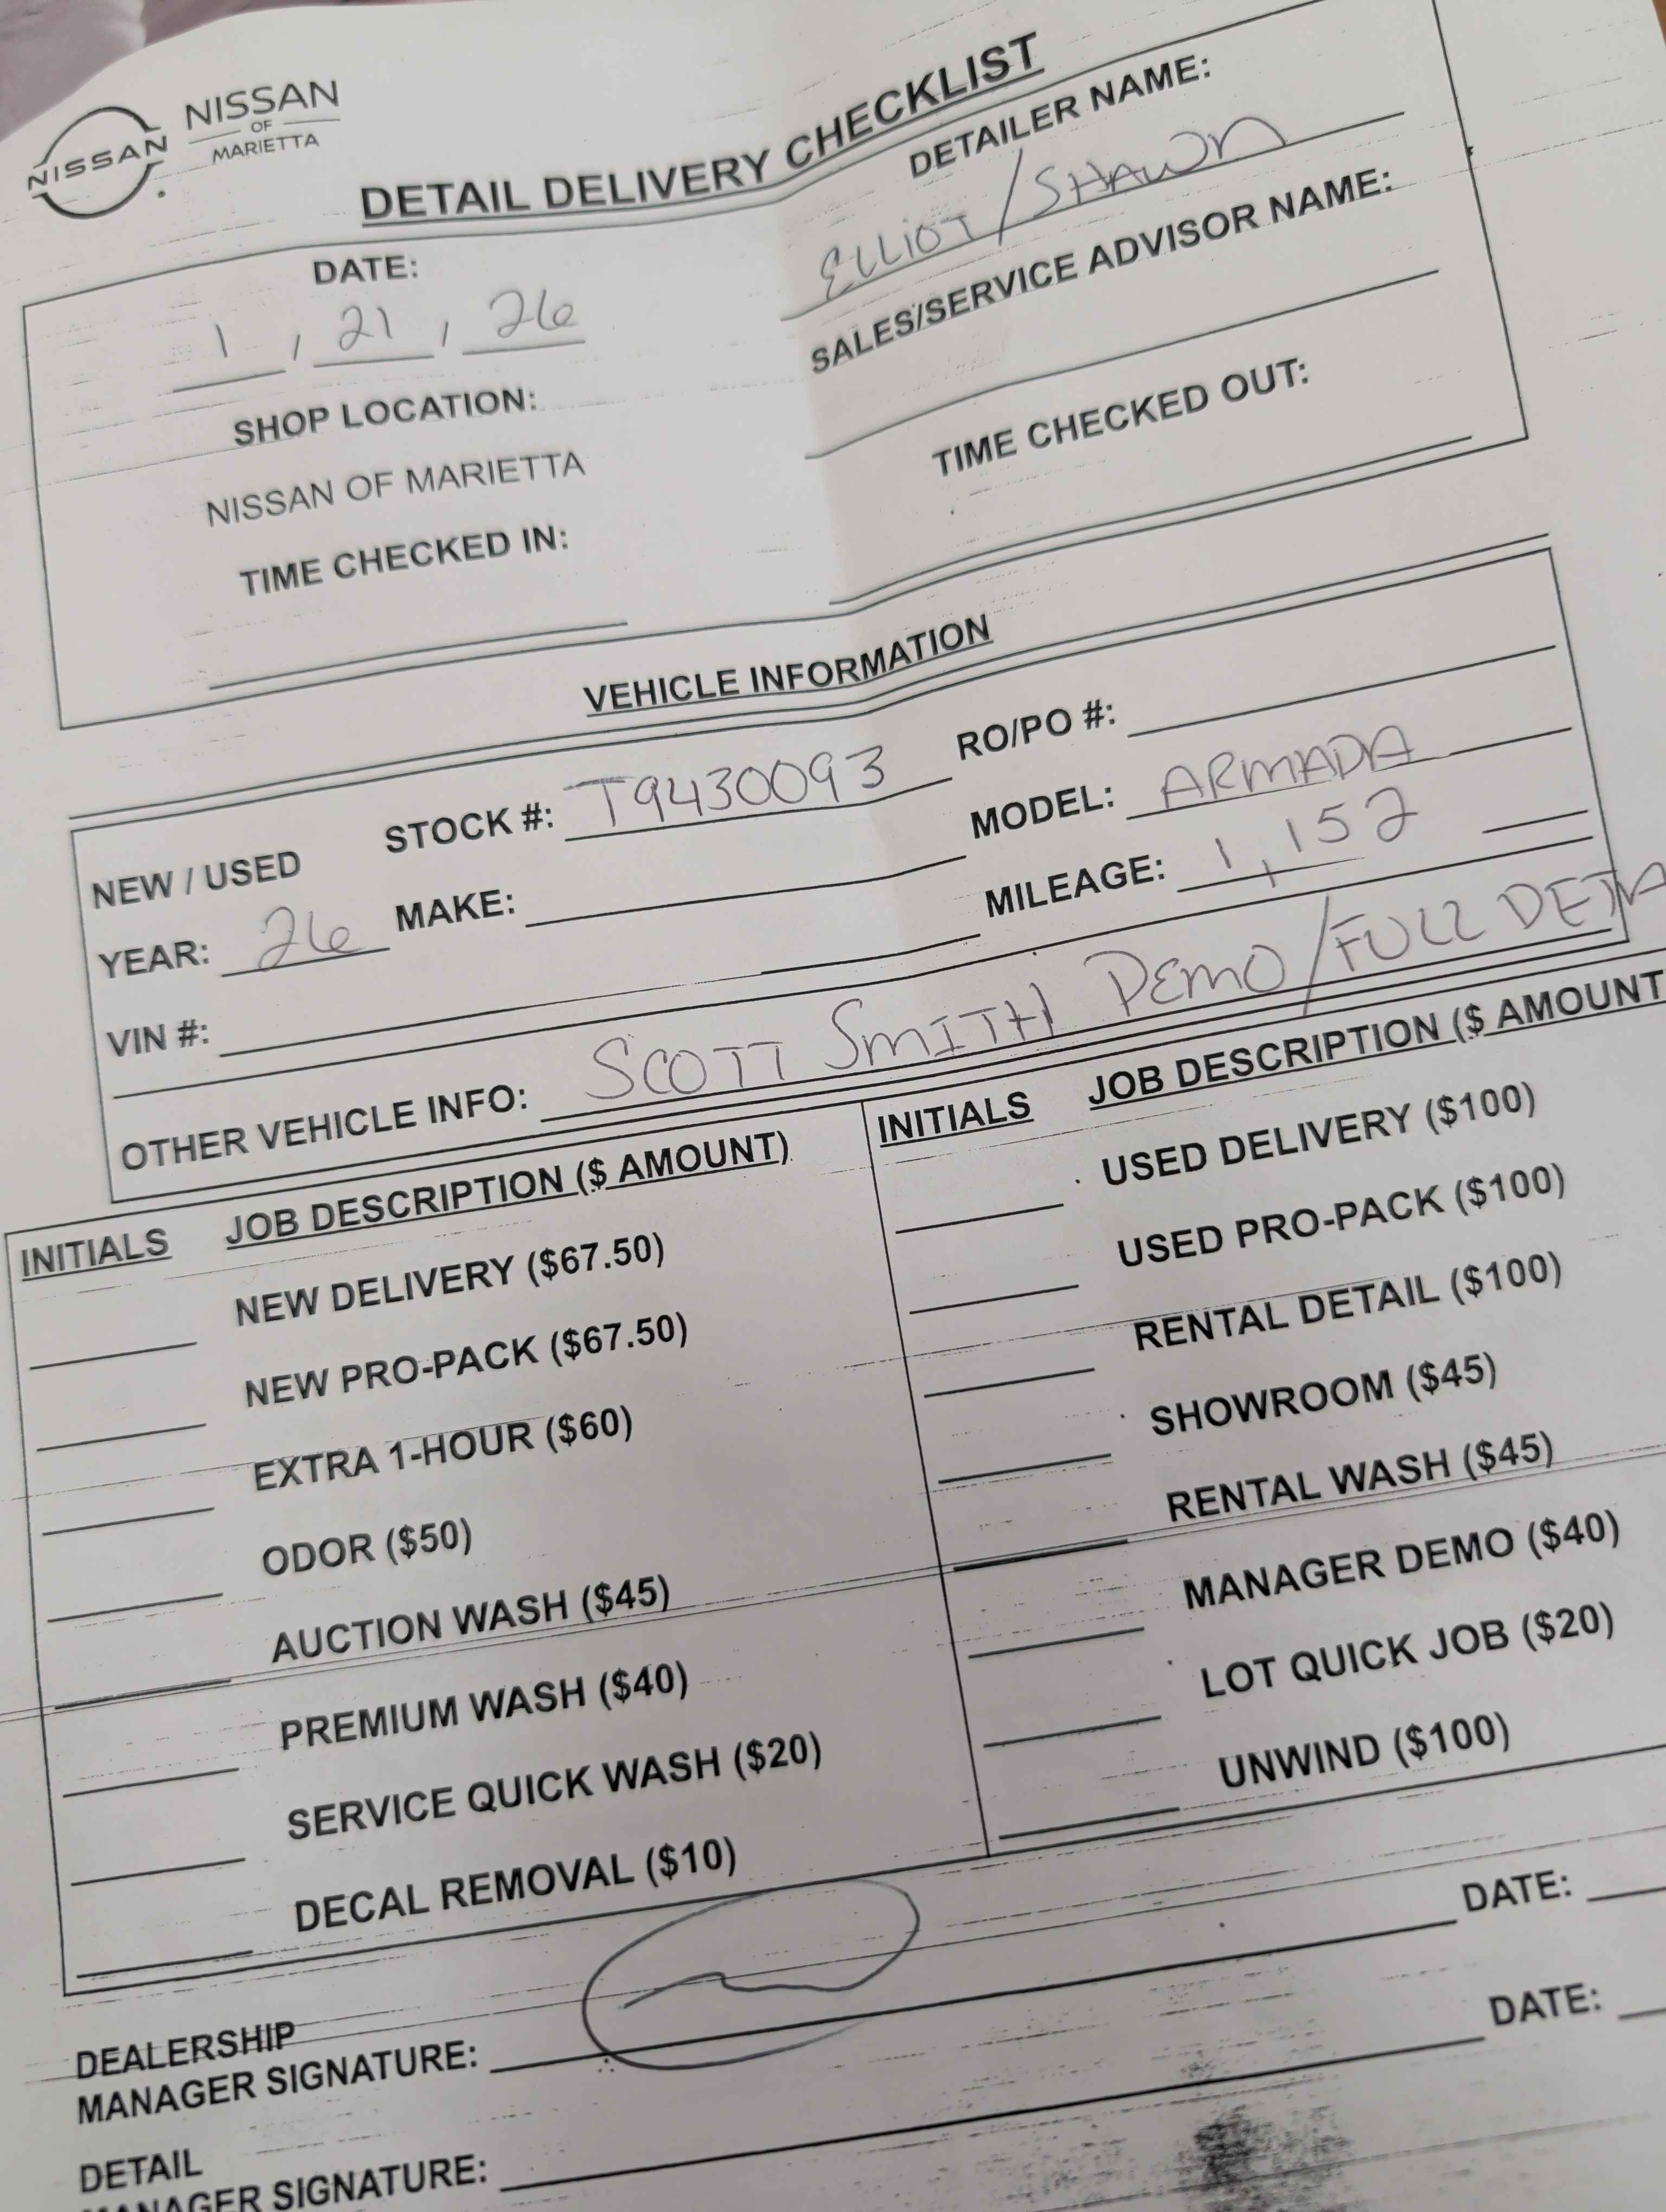 NISSAN
NISSAN
OF
MARIETTA
DETAIL DELIVERY CHECKLIST
DATE:
1 / 21 / 26
SHOP LOCATION:
NISSAN OF MARIETTA
TIME CHECKED IN:
DETAILER NAME:
ELLIOT/SHAWN
SALES/SERVICE ADVISOR NAME:
TIME CHECKED OUT:
VEHICLE INFORMATION
NEW / USED STOCK #: T9430093 RO/PO #:
YEAR: 26 MAKE: MODEL: ARMADA
VIN #: MILEAGE: 1,152
OTHER VEHICLE INFO: SCOTT SMITH DEMO/FULL DETA
INITIALS JOB DESCRIPTION ($ AMOUNT)
NEW DELIVERY ($67.50)
NEW PRO-PACK ($67.50)
EXTRA 1-HOUR ($60)
ODOR ($50)
AUCTION WASH ($45)
PREMIUM WASH ($40)
SERVICE QUICK WASH ($20)
DECAL REMOVAL ($10)
INITIALS JOB DESCRIPTION ($ AMOUNT
USED DELIVERY ($100)
USED PRO-PACK ($100)
RENTAL DETAIL ($100)
SHOWROOM ($45)
RENTAL WASH ($45)
MANAGER DEMO ($40)
LOT QUICK JOB ($20)
UNWIND ($100)
DEALERSHIP
MANAGER SIGNATURE: DATE:
DETAIL
MANAGER SIGNATURE: DATE: